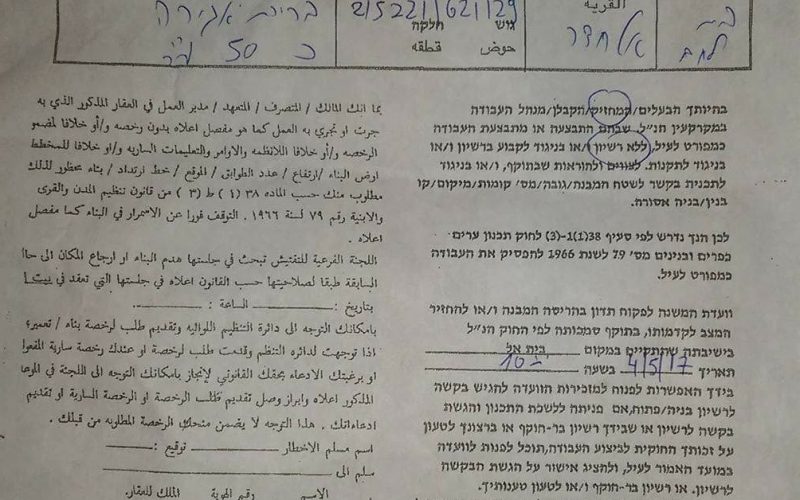 القرية
אלחדר
גוש
חלקה
حوض
قطعه
בריכת אגירה
כ 50 מ"ר
בהיותך הבעלים/המחזיק/הקבלן/מנהל העבודה
במקרקעין הנ"ל, שבהם התבצעה או מתבצעת העבודה
כמפורט לעיל, ללא רשיון/או בניגוד לקבוע ברשיון ו/או
בניגוד לתקנות, לצווים ולהוראות שבתוקף, ו/או בניגוד
לתכנית בקשר לשטח המבנה/גובה/מס' קומות/מיקום/קו
בנין/בניה אסורה.
לכן הנך נדרש לפי סעיף 38(1)-(3) לחוק תכנון ערים
כפרים ובנינים מס' 79 לשנת 1966 להפסיק את העבודה
כמפורט לעיל.
וועדת המשנה לפקוח תדון בהריסת המבנה ו/או להחזיר
המצב לקדמותו, בתוקף סמכותה לפי החוק הנ"ל
בישיבתה שתתקיים במקום בית אל
תאריך 4/5/17 בשעה 10
בידך האפשרות לפנות למזכירות הוועדה להגיש בקשה
לרשיון בניה/פתוח, אם פניתה ללשכת התכנון והגשת
בקשה לרשיון או שבידך רשיון בר-תוקף או ברצונך לטעון
על זכותך החוקית לביצוע העבודה, תוכל לפנות לוועדה
במועד האמור לעיל, ולהציג אישור על הגשת הבקשה
לרשיון, או רשיון בר-תוקף ו/או לטעון טענותיך.
بما انك المالك / المتصرف / المتعهد / مدير العمل في العقار المذكور الذي به
جرت او تجري به العمل كما هو مفصل اعلاه بدون رخصه و/أو خلافا لمضمو
الرخصه و/أو خلافا للانظمه والاوامر والتعليمات الساريه و/او خلافا للمخطط
اوض البناء /ارتفاع / عدد الطوابق / الموقع / خط ارتداد / بناء محظور لذلك
مطلوب منك حسب الماده ٣٨ (١) ط (٣) من قانون تنظيم المدن والقرى
والابنية رقم ٧٩ لسنة ١٩٦٦ . التوقف فورا عن الاسمرار في البناء كما مفصل
اعلاه .
اللجنة الفرعية للتفتيش تبحث في جلستها هدم البناء او ارجاع المكان الى حاا
السابقة طبقا لصلاحيتها حسب القانون اعلاه في جلستها التي تعقد في بيت ا
بتاريخ : الساعة :
بامكانك التوجه الى دائرة التنظيم اللوائيه وتقديم طلب لرخصة بناء / تعمير؛
اذا توجهت لدائره التنظم وقدمت طلب لرخصة او عندك رخصة سارية المفعوا
او برغبتك الادعاء بحقك القانوني لإنجاز بامكانك التوجه الى اللجنة في الموعا
المذكور اعلاه وابراز وصل تقديم طلب الرخصة او الرخصة السارية او تقديم
ادعاءاتك . هذا التوجه لا يضمن منحك الرخصة المطلوبه من قبلك .
اسم مسلم الاخطار توقيع :
سلم الى
الاسم وقم الهوية المالك للعقار.